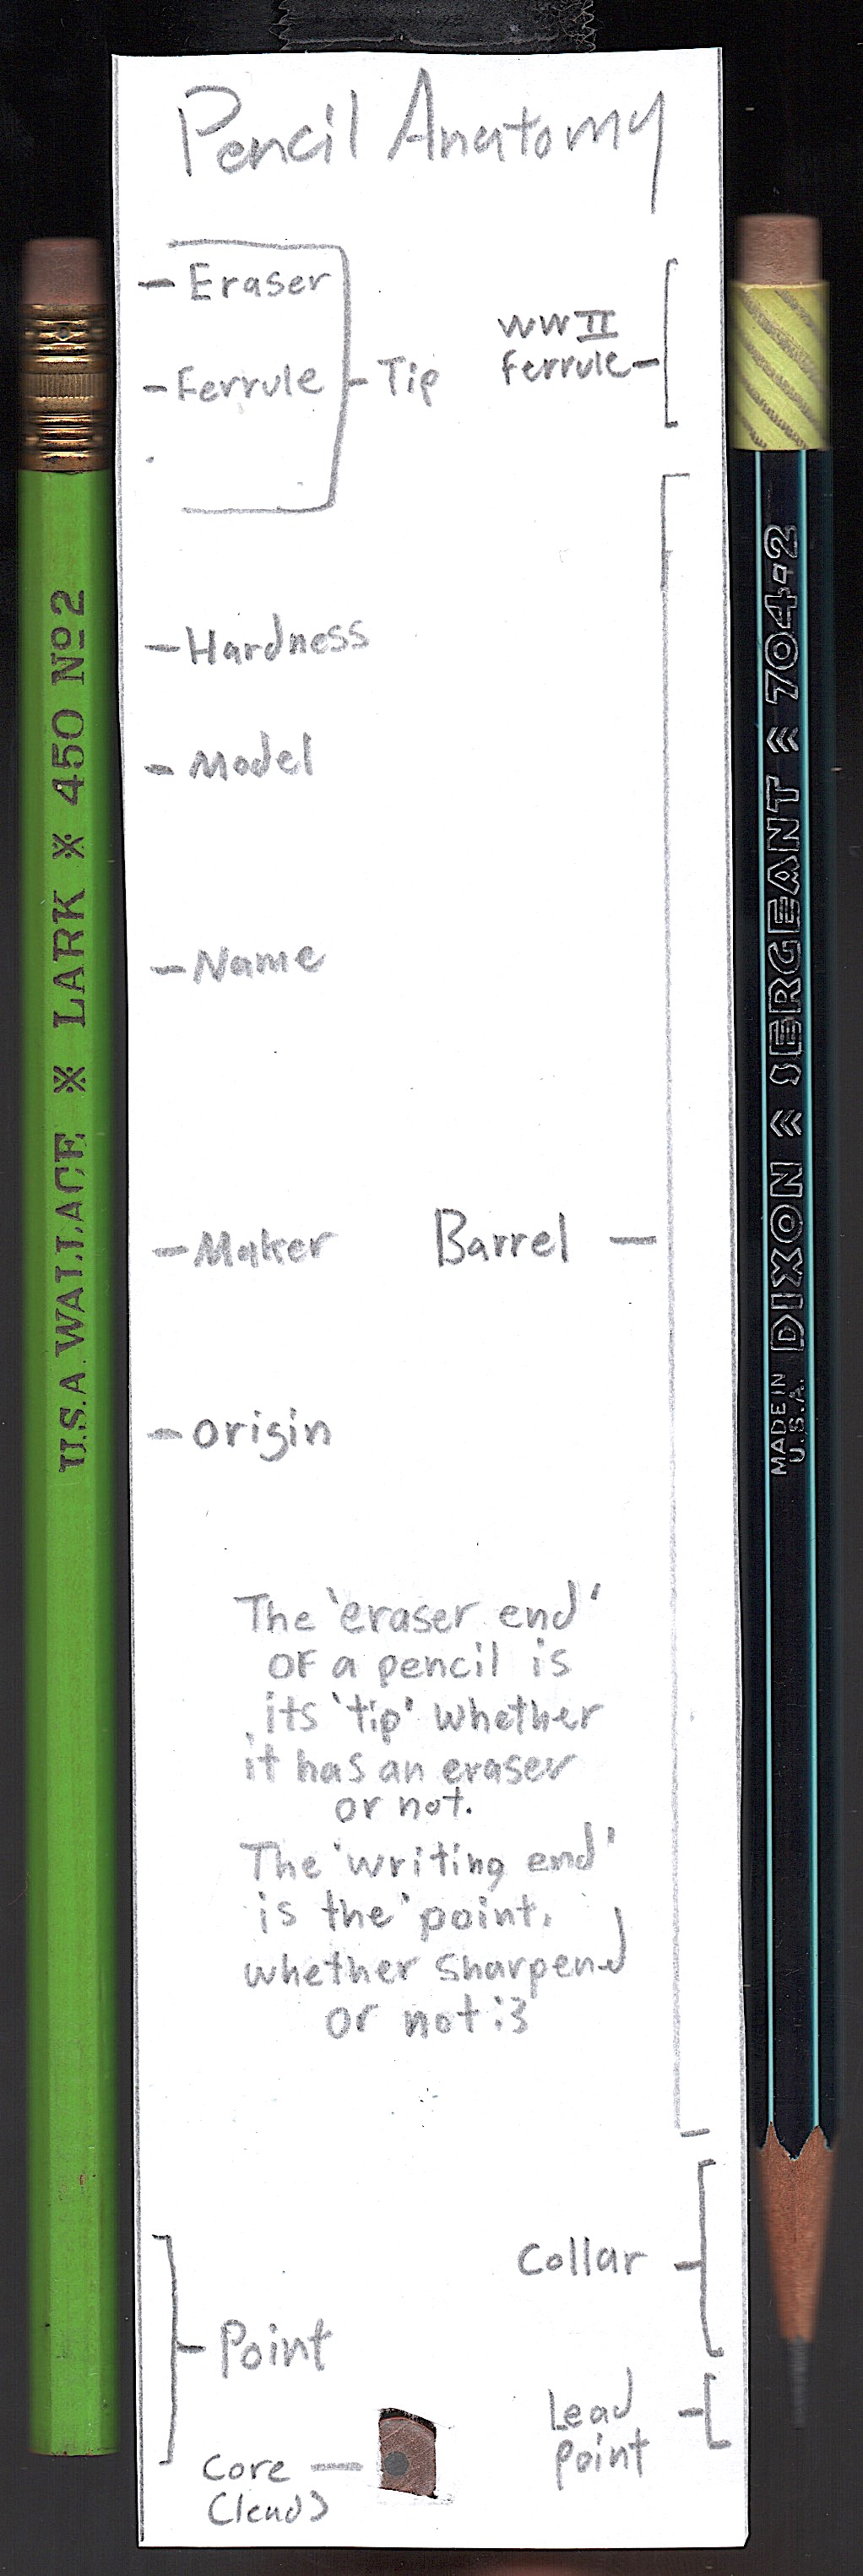 Pencil Anatomy
Eraser
Ferrule
Tip
WWII
Ferrule
Hardness
Model
Name
Maker
Barrel
Origin
The 'eraser end'
of a pencil is
its 'tip' whether
it has an eraser
or not.
The 'writing end'
is the 'point,
whether sharpened
or not :3
Collar
Point
Lead
Point
Core
(lead)
U.S.A. WALLACE ※ LARK ※ 450 No 2
MADE IN
U.S.A.
DIXON « SERGEANT « 704-2